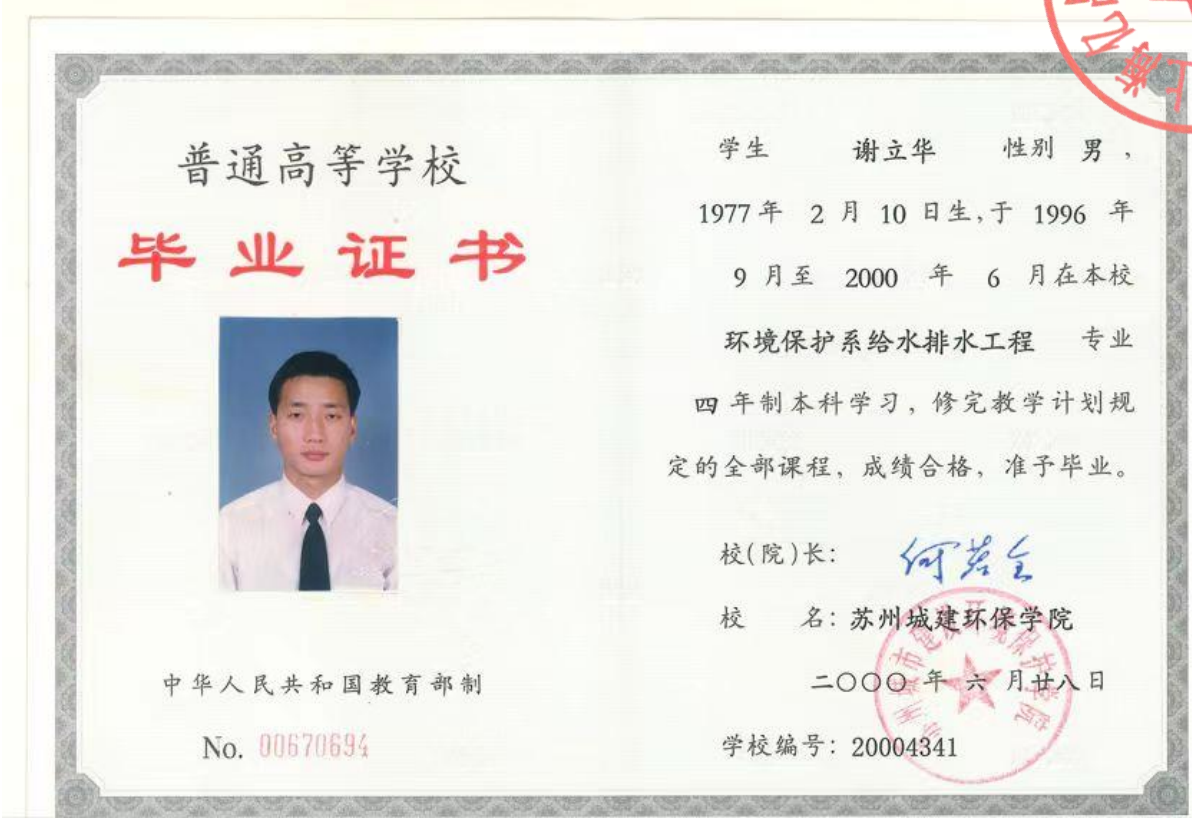 普通高等学校
毕业证书
中华人民共和国教育部制
No. 00670694
学生 谢立华 性别 男，
1977年 2 月 10 日生,于 1996 年
9 月至 2000 年 6 月在本校
环境保护系给水排水工程 专业
四 年制本科学习，修完教学计划规
定的全部课程，成绩合格，准予毕业。
校(院)长： 何若全
校 名：苏州城建环保学院
二〇〇〇 年 六 月廿八日
学校编号：20004341
上海亿